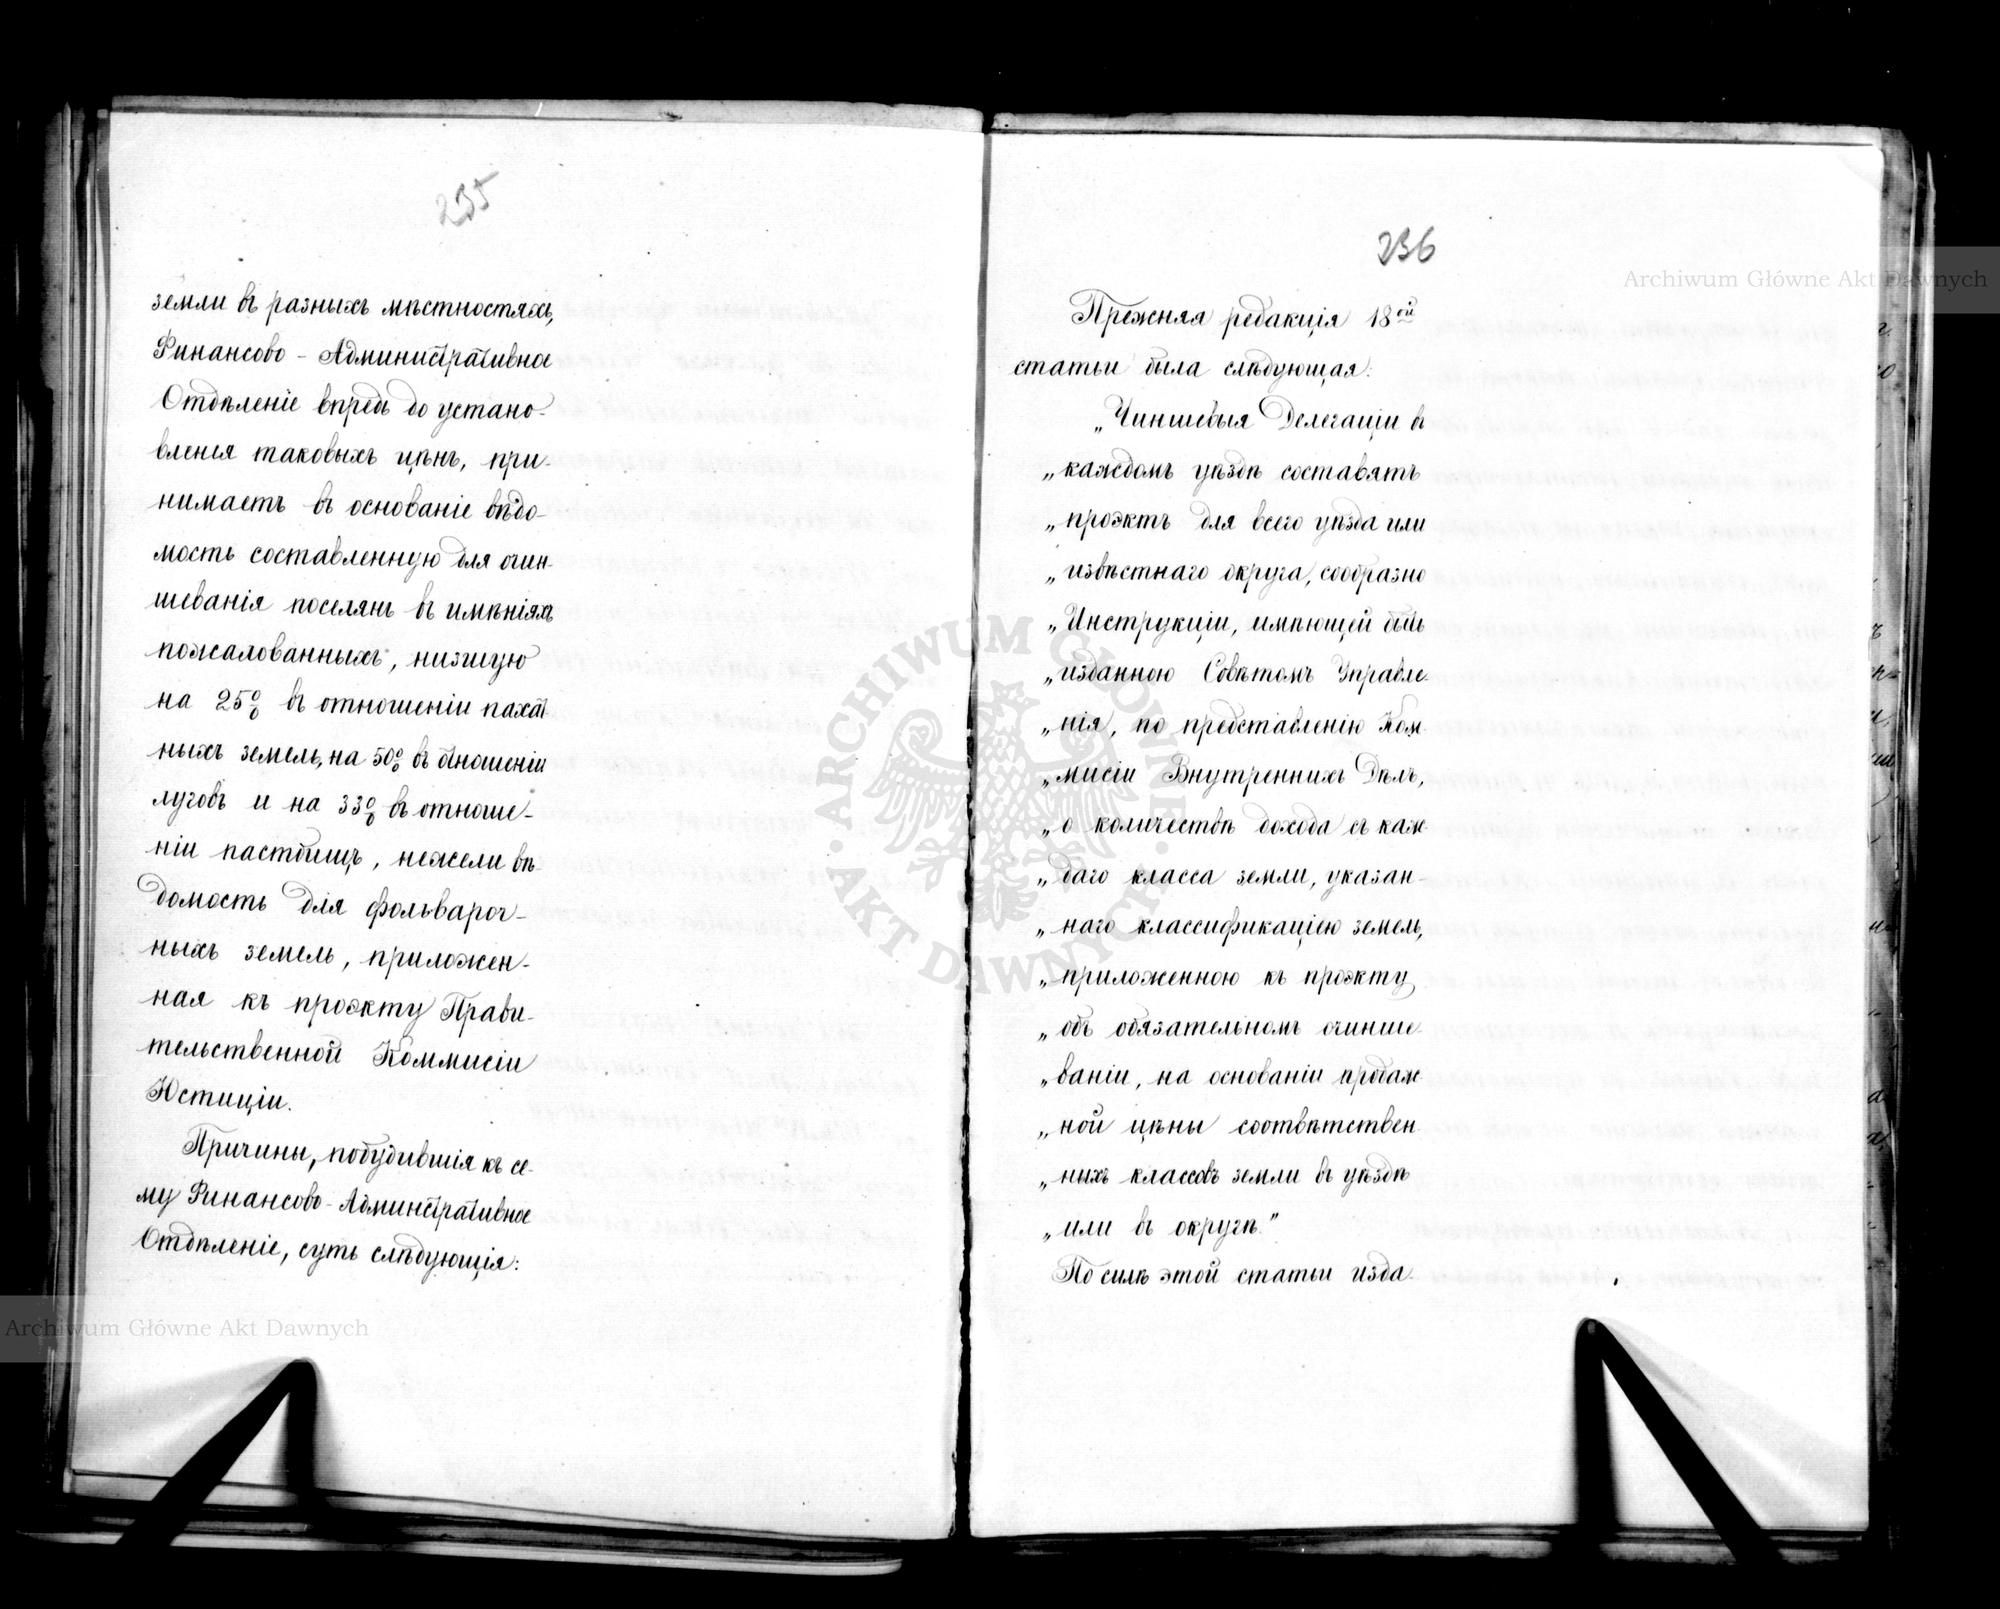 235
земли въ разныхъ мѣстностяхъ,
Финансово-Административное
Отдѣленіе впредь до устано-
вленія таковыхъ цѣнъ, при-
нимаетъ въ основаніе вѣдо-
мость составленную для очин-
шеванія поселянъ въ имѣніяхъ
пожалованныхъ, низшую
на 25% въ отношеніи пахат-
ныхъ земель, на 50% въ отношеніи
луговъ и на 33% въ отноше-
ніи пастбищъ, нежели вѣ-
домость для фольвароч-
ныхъ земель, приложен-
ная къ проэкту Прави-
тельственной Коммисіи
Юстиціи.
Причины, побудившія къ се-
му Финансово-Административное
Отдѣленіе, суть слѣдующія:
236
Прежняя редакція 18ой
статьи была слѣдующая:
„Чиншевыя Делегаціи въ
„каждомъ уѣздѣ составятъ
„проэктъ для всего уѣзда или
„извѣстнаго округа, сообразно
„Инструкціи, имѣющей быть
„изданною Совѣтомъ Управле-
„нія, по представленію Ком-
„мисіи Внутреннихъ Дѣлъ,
„о количествѣ дохода съ каж-
„даго класса земли, указан-
„наго классификаціею земель,
„приложенною къ проэкту
„объ обязательномъ очинше-
„ваніи, на основаніи продаж-
„ной цѣны соотвѣтствен-
„ныхъ классовъ земли въ уѣздѣ
„или въ округѣ.”
По силѣ этой статьи изда-
Archiwum Główne Akt Dawnych
Archiwum Główne Akt Dawnych
ARCHIWUM GŁÓWNE
AKT DAWNYCH